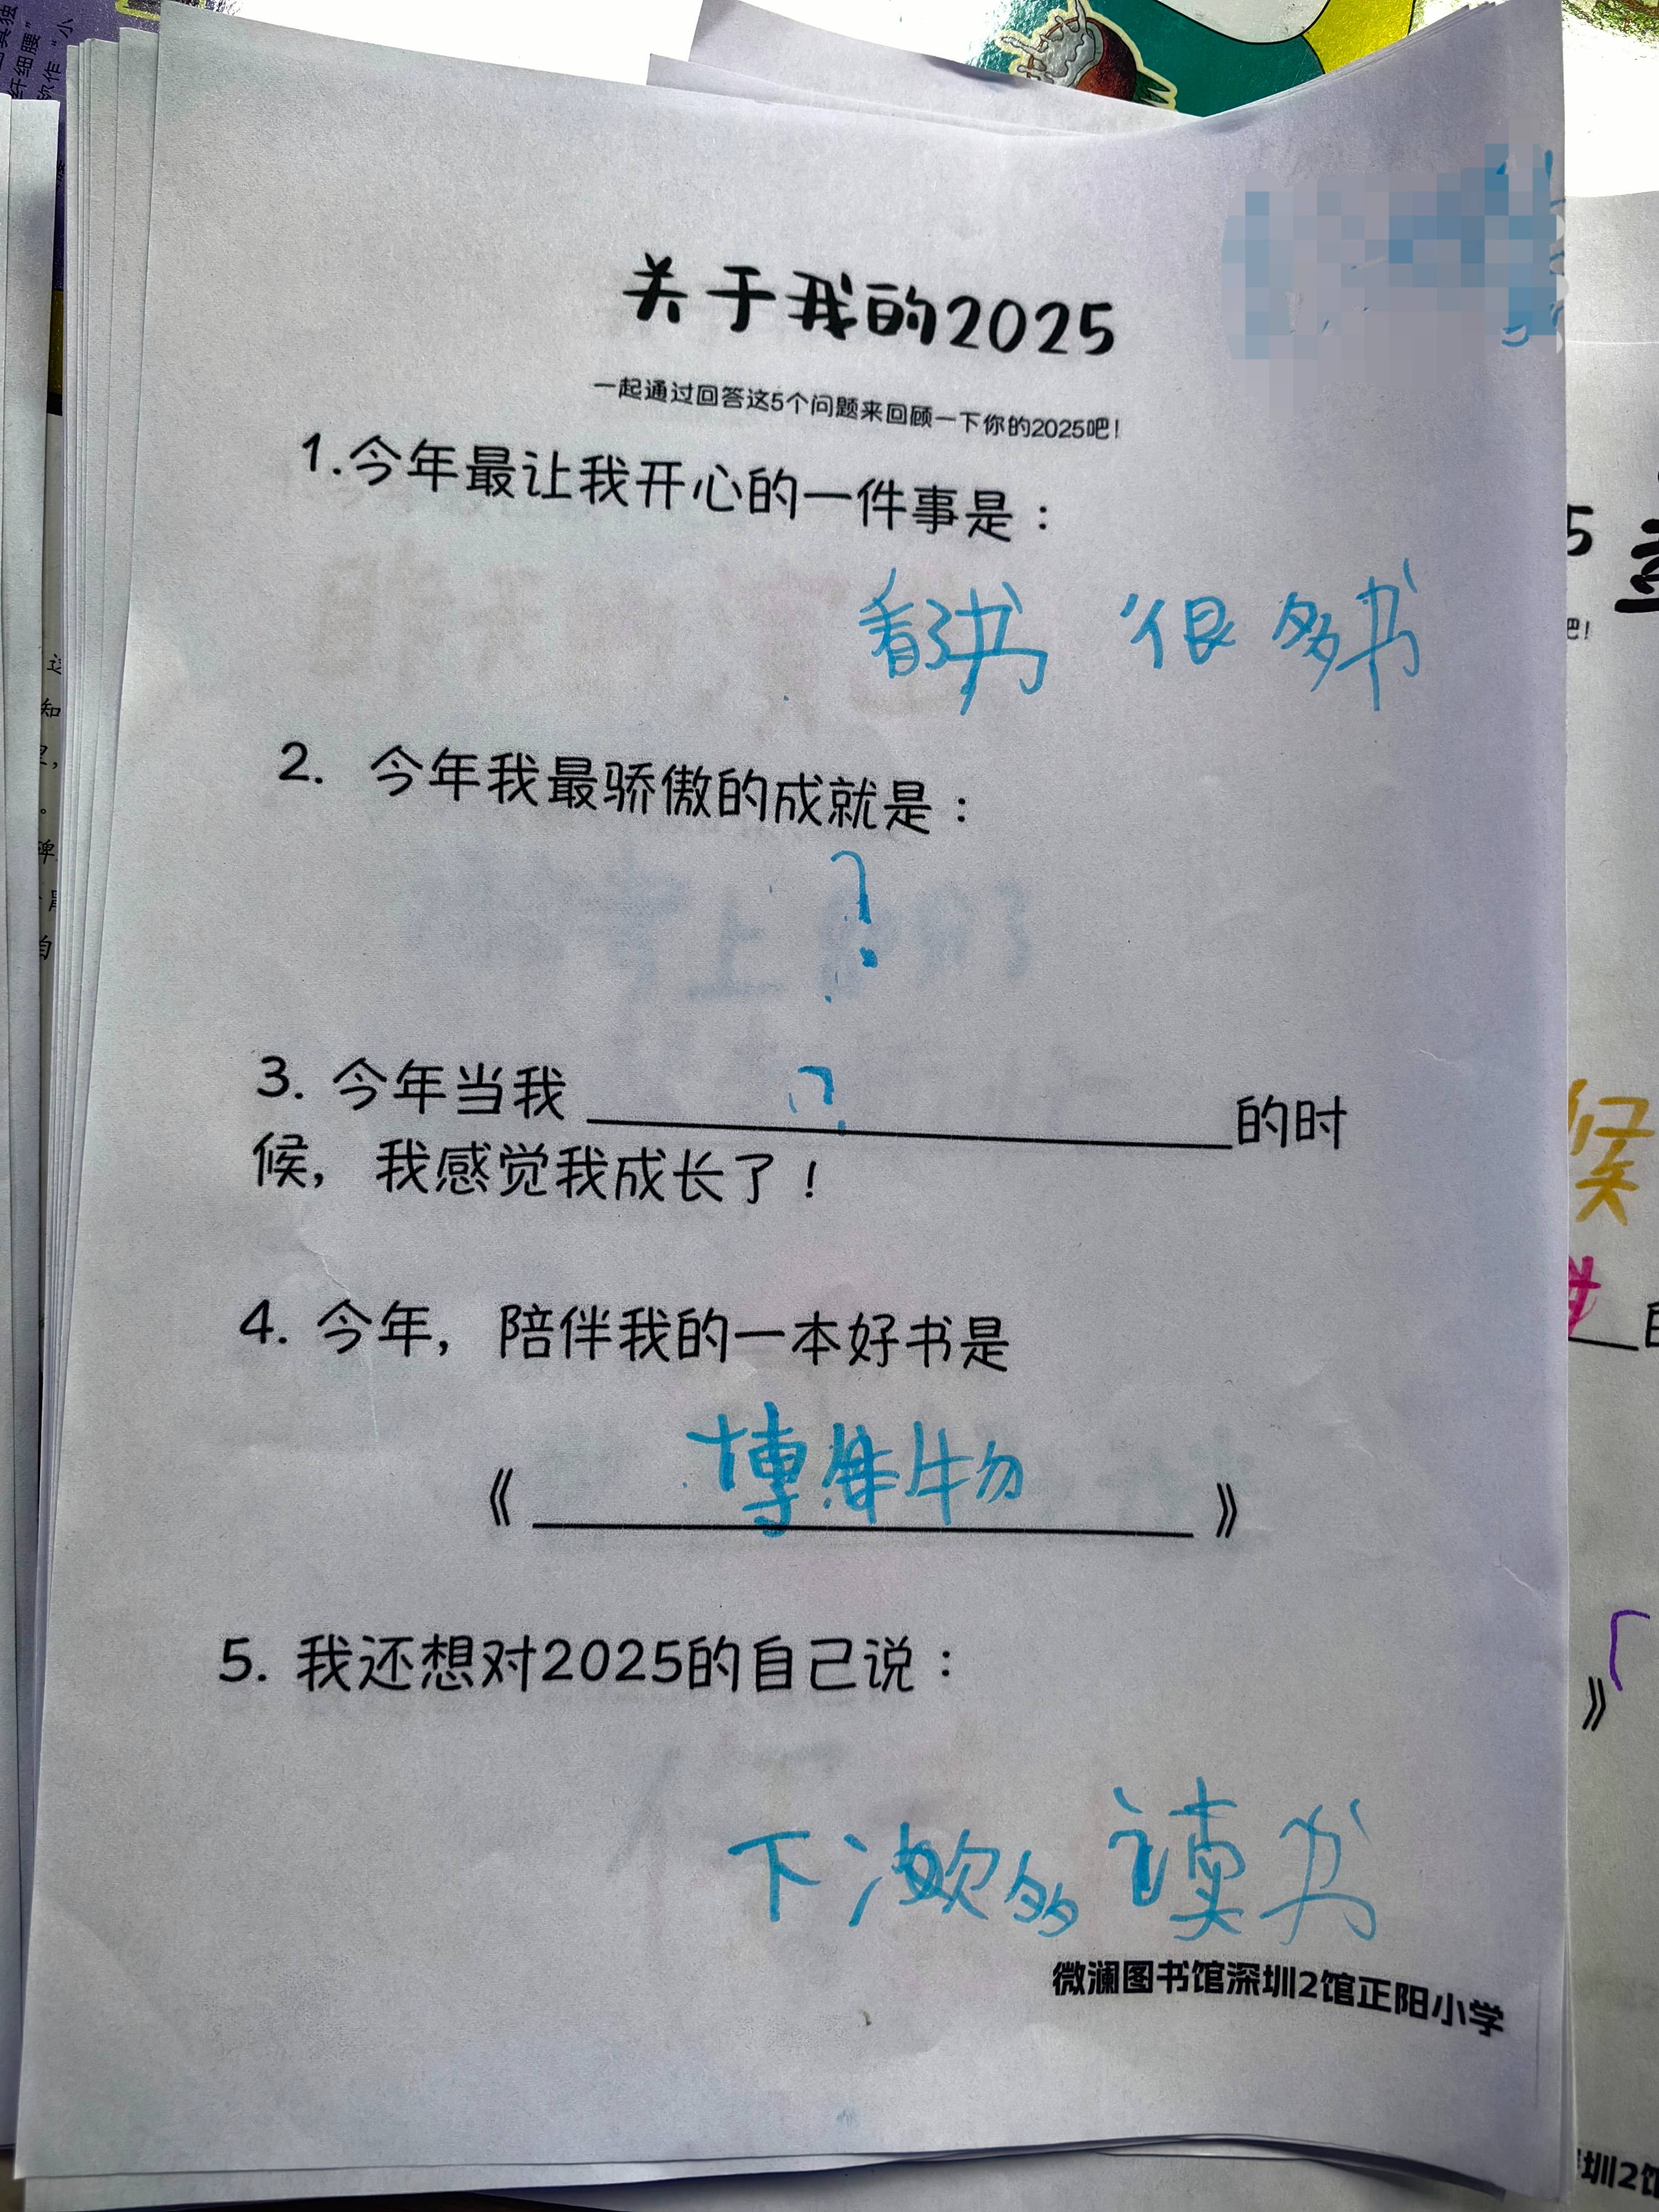 关于我的2025
一起通过回答这5个问题来回顾一下你的2025吧!
1.今年最让我开心的一件事是：
看了书 很多书
2. 今年我最骄傲的成就是：
?
3. 今年当我 ? 的时
候，我感觉我成长了！
4. 今年，陪伴我的一本好书是
《博物》
5. 我还想对2025的自己说：
下次多读书
微澜图书馆深圳2馆正阳小学
纤细腰”
5
吧!
候
》
圳2馆